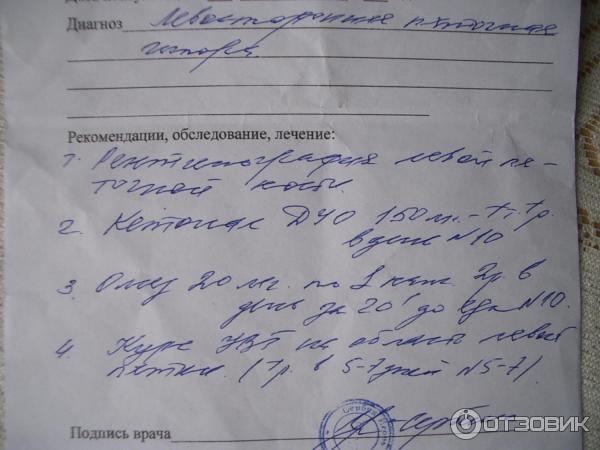 Диагноз Левосторонняя пяточная
шпора.
Рекомендации, обследование, лечение:
1. Рентгенография левой пя-
точной кости.
2. Кетонал ДУО 150 м. - 1т. 1р.
в день N10
3. Омез 20 мг. по 1 капс. 2р. в
день за 20' до еды N10.
4. Курс УВТ на область левой
пятки. (1р. в 5-7 дней N5-7).
Подпись врача
ОТЗОВИК